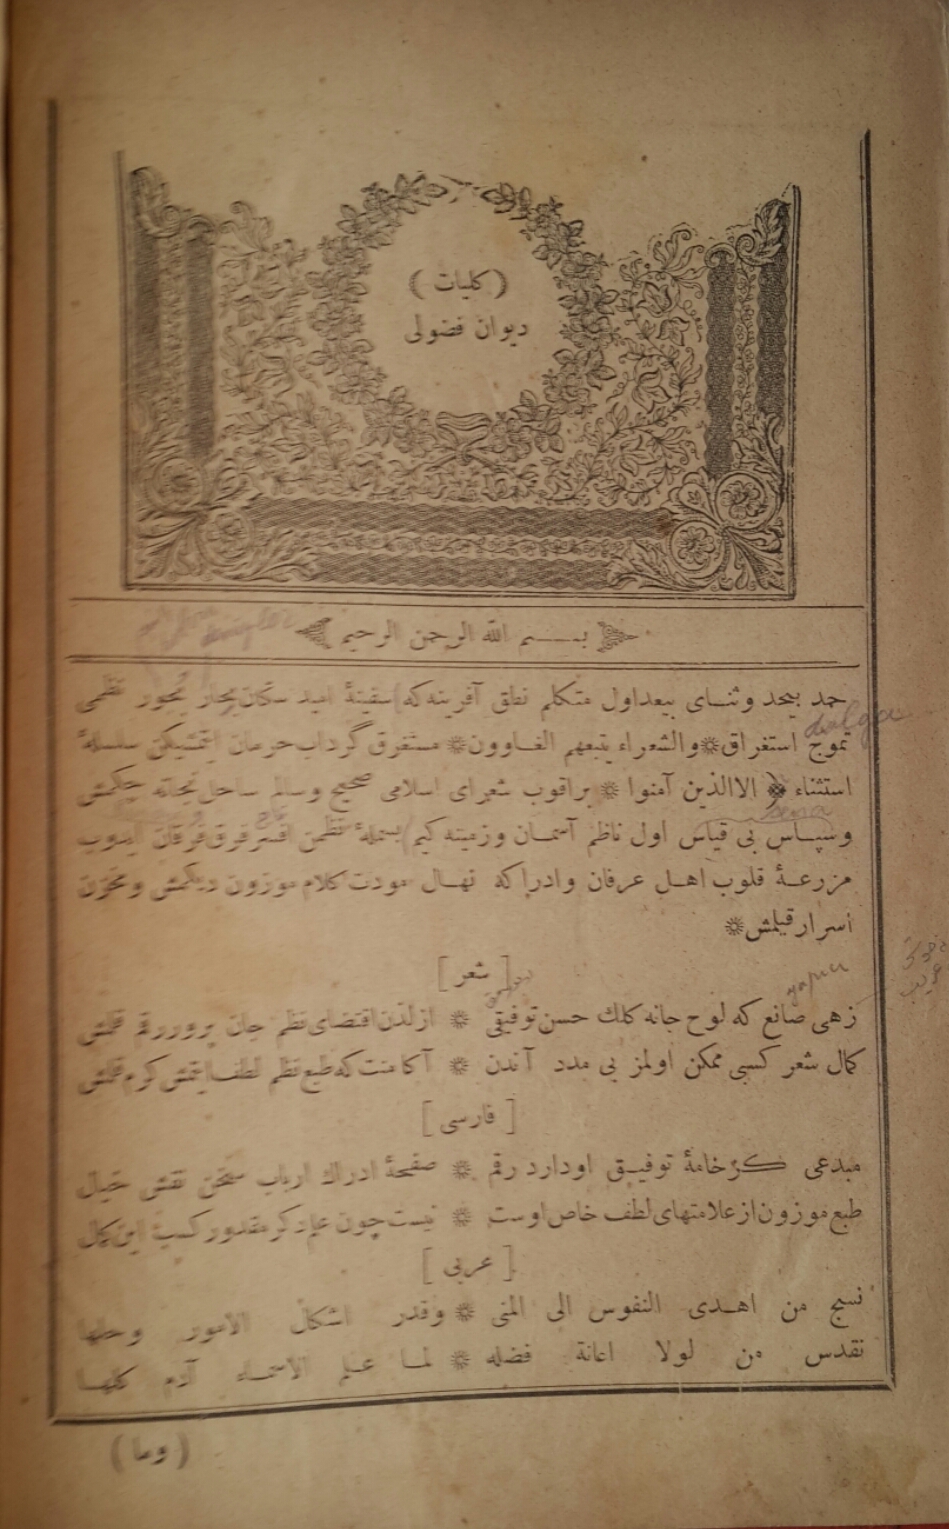 ( كليات )
ديوان فضولی
بســم الله الرحمن الرحيم
حمد بيحد وثنــای بيعداول متكلم نطق آفرينه كه سفينهٔ اميد سكان بحار بحور نظمی
dalga
تموج استغراق ❋ والشعراء يتبعهم الغــاوون ❋ مستغرق گرداب حرمان ايتمشيكن سلسلهٔ
استثناء ❋ الاالذين آمنوا ❋ براقوب شعرای اسلامی صحيح وسالم ساحل نجاته چكمش
sema
وسپــاس بی قياس اول ناظم آسمــان وزمينه كيم بسملهٔ نظمن افسر فرق فرقان ايدوب
مزرعــهٔ قلوب اهــل عرفان وادراكه نهــال مودت كلام موزون ديكمش ومخزن
اسرار قيلمش ❋
[ شعر ]
yapıcı
زهی صانع كه لوح جانه كلك حسن توفيقی ❋ ازلدن اقتضای نظم جان پرور رقم قلمش
كمال شعر كسبی ممكن اولمز بی مدد آندن ❋ آكا منت كه طبع نظم لطف ايتمش كرم قلمش
[ فارسی ]
مبدعی كز خامهٔ توفيــق اودارد رقم ❋ صفحهٔ ادراك ارباب سخن نقش خيال
طبع موزون از علامتهای لطف خاص اوست ❋ نيست چون عباد كر مقدور كسب اين كمال
[ عربی ]
نسبح من اهــدی النفوس الی المنی ❋ وقدر اشكال الامور وحلها
نقدس من لولا اعانة فضله ❋ لمــا علم الاسمــاء آدم كلهــا
( وما )